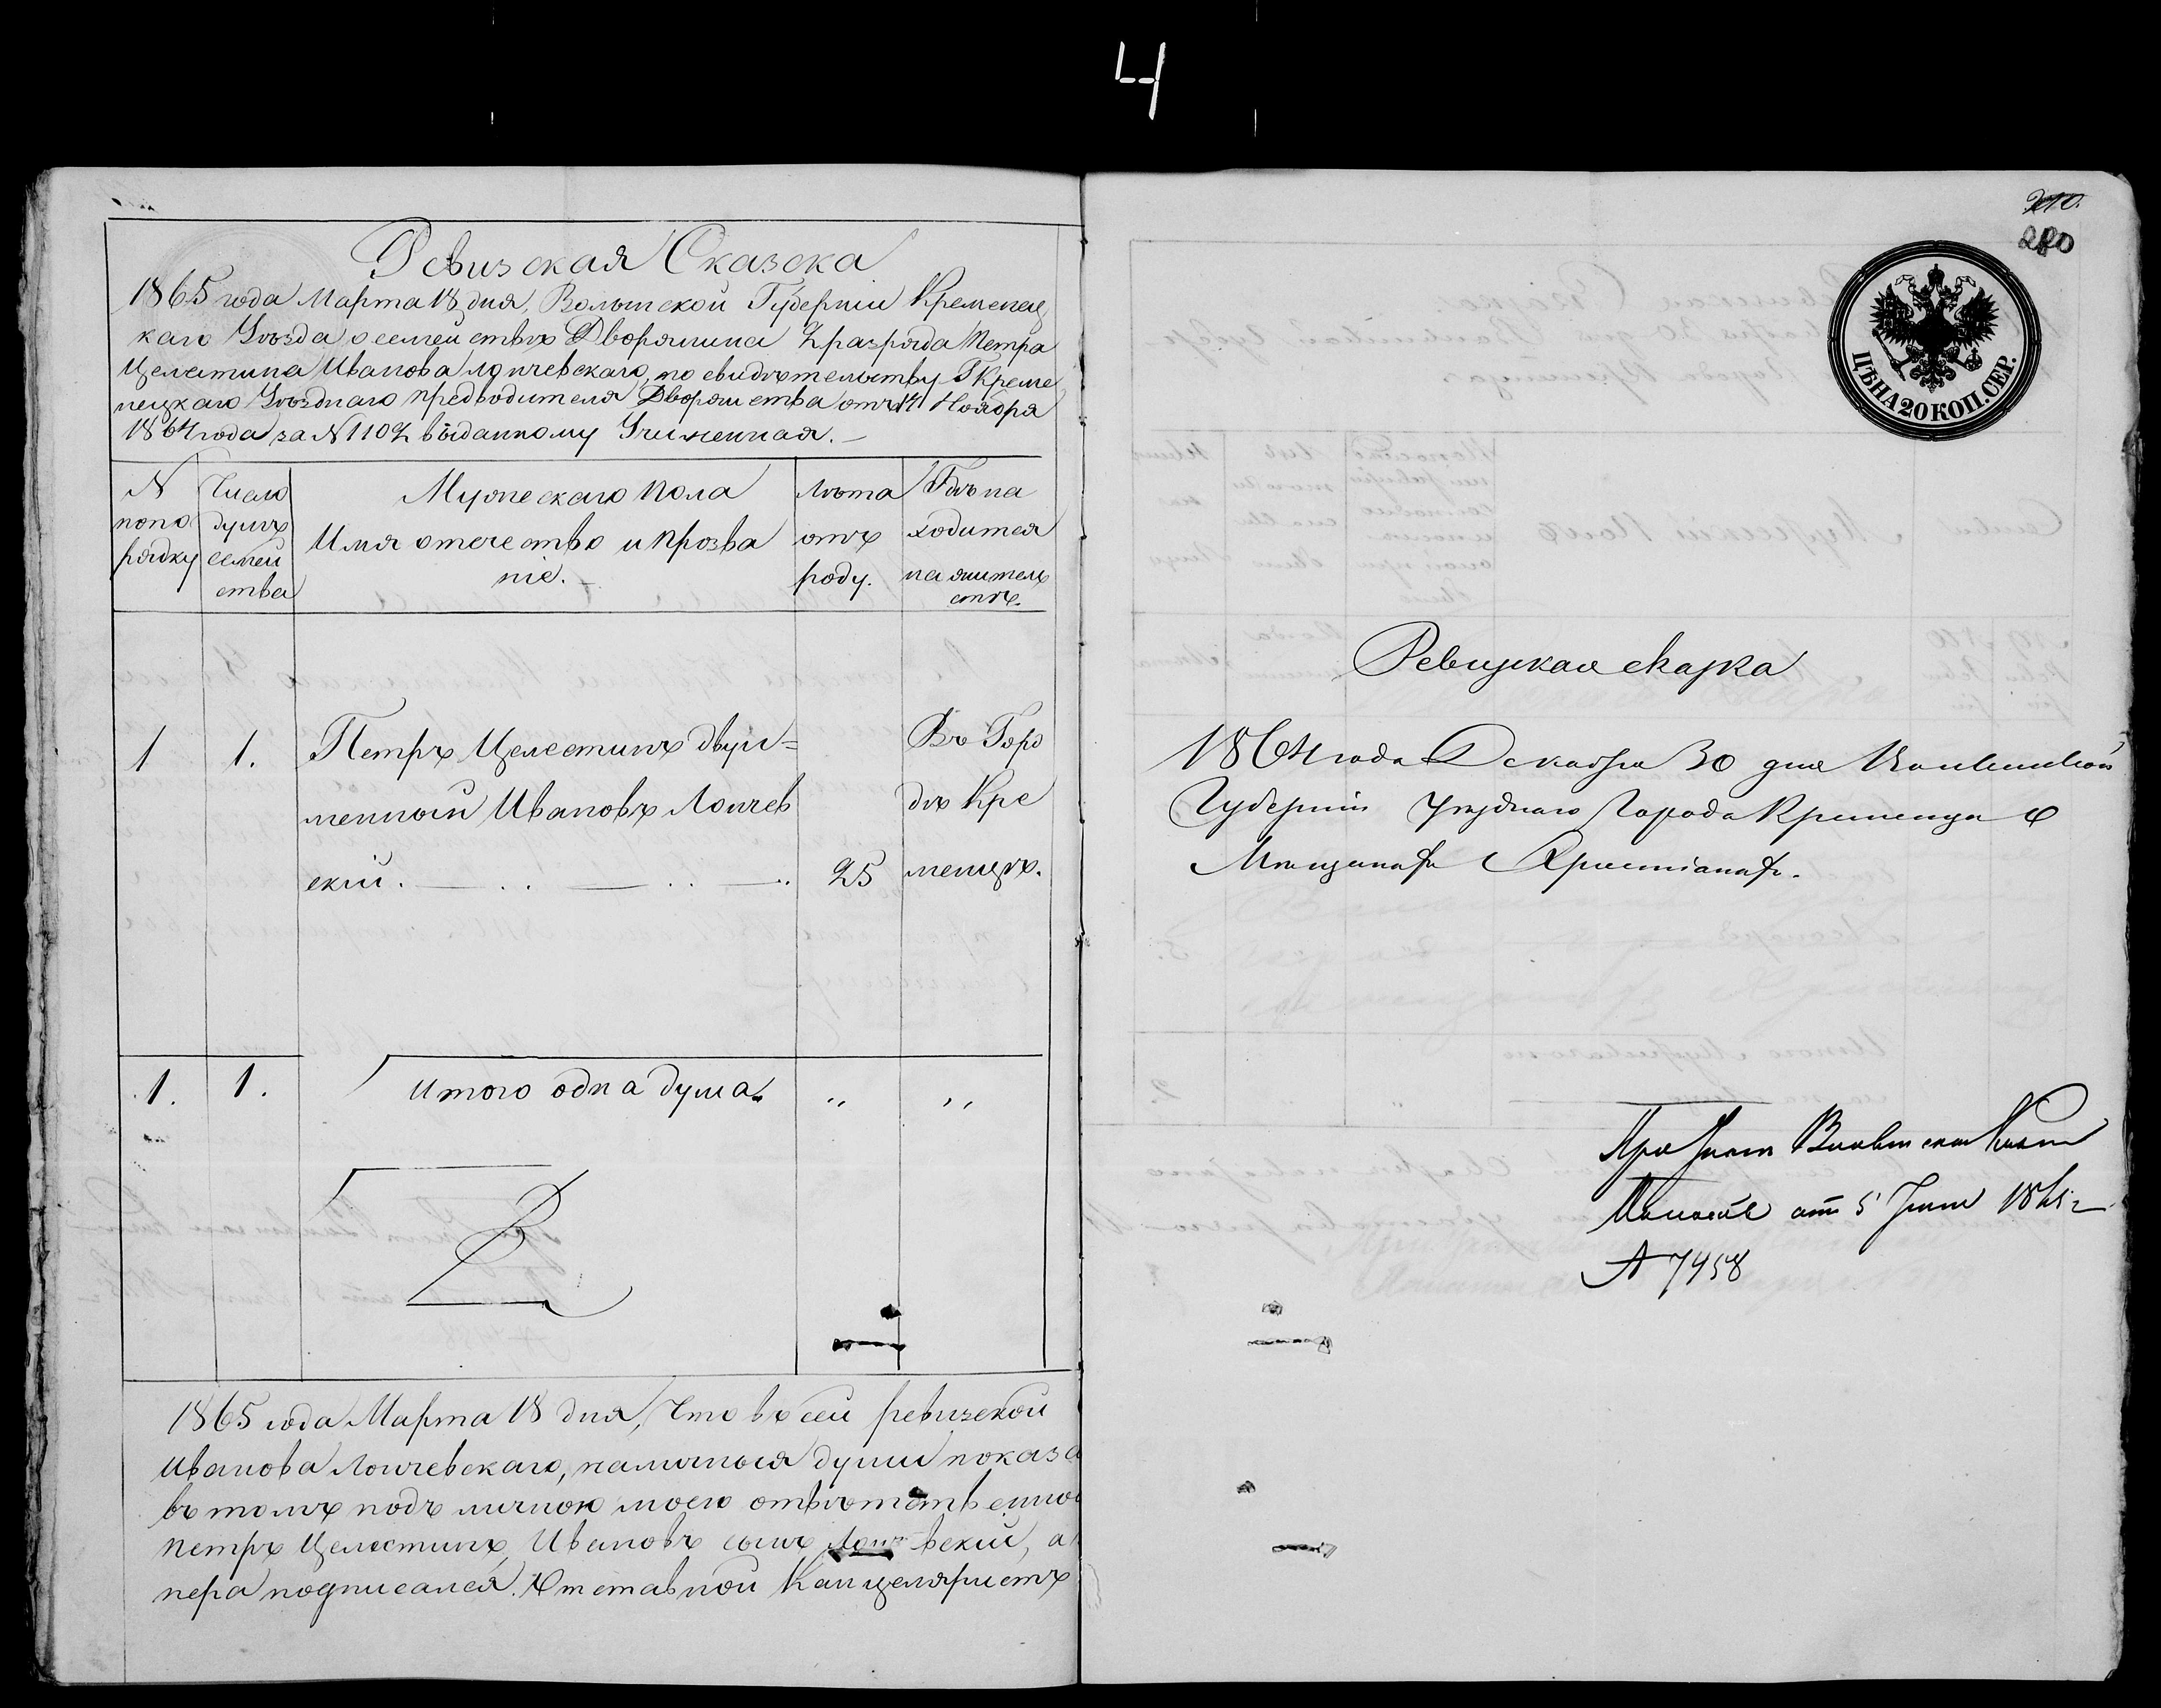 4
Ревизская Сказска
1865 года Марта 18 дня, Волынской Губерніи Кременец
каго Уѣзда о семействѣ Дворянина 2 разряда Петра
Целестина Иванова Лончевскаго, по свидѣтельству Г Креме
нецкаго Уѣзднаго Предводителя Дворянства отъ 17 Ноября
1864 года за N 1102 выданному Учиненная. —
N
попо
рядку
Число
душъ
семей
ства
Мужескаго пола
Имя отечество и прозва
ніе. —
Лѣта
отъ
роду.
Гдѣ на
ходится
на житель
ствѣ.
1
1.
Петръ Целестинъ двуи=
менный Ивановъ Лончев
скій.
25
Въ Горо
дѣ Кре
менцѣ.
1.
1.
Итого одна душа.
„
„
1865 года Марта 18 дня, Что въ сей ревизской
Иванова Лончевскаго, наличныя души показа
въ томъ подъ личною моею отвѣтственно
Петръ Целестинъ Ивановъ сынъ Лончевскій, а
пера подписался. Отставной Канцеляристъ
210.
220
ЦѢНА 20 КОП. СЕР.
Ревизская сказка
1864 года Декабря 30 дня Волынской
Губерніи Уѣзднаго Города Кременца о
Мѣщанахъ Христіанахъ.
При Указѣ Волынской Казен
Палаты отъ 5 1865 г
№ 7458